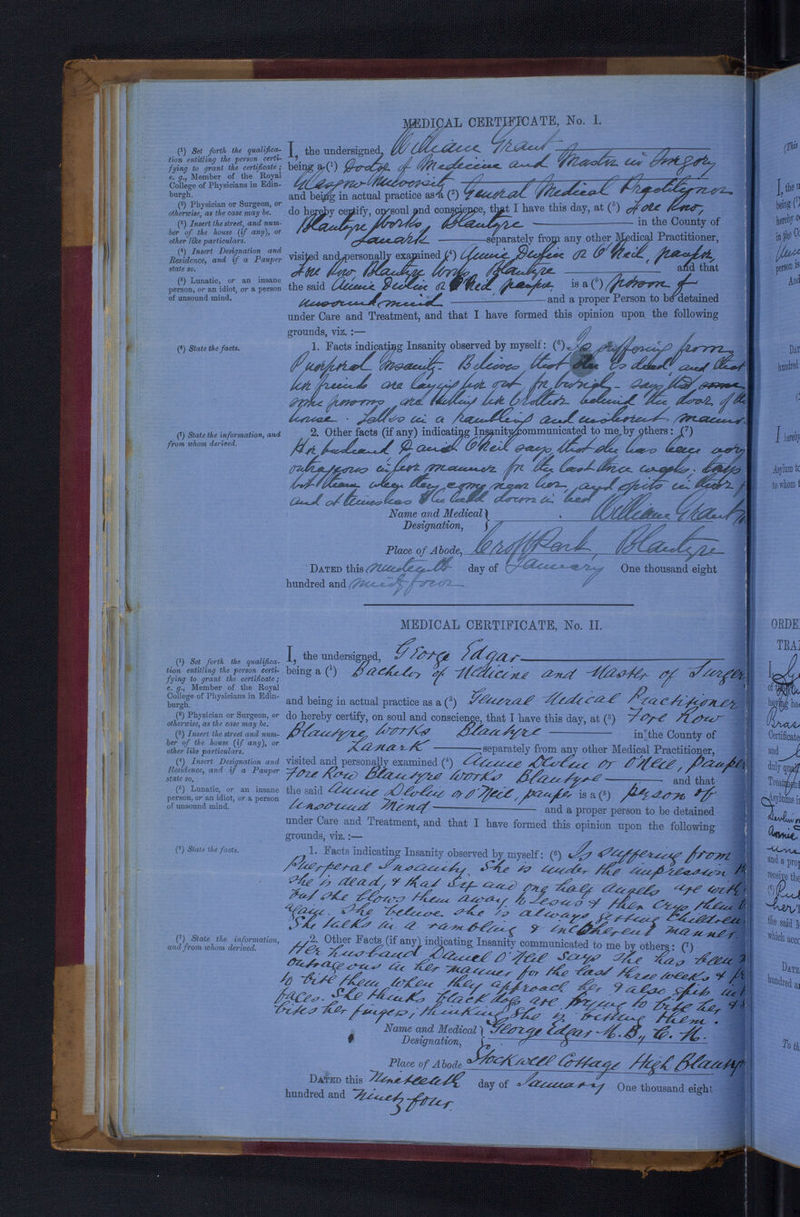 MEDICAL CERTIFICATE, No. I.
(1) Set forth the qualifica-
tion entitling the person certi-
fying to grant the certificate;
e. g., Member of the Royal
College of Physicians in Edin-
burgh.
(2) Physician or Surgeon, or
otherwise, as the case may be.
(3) Insert the street, and num-
ber of the house (if any), or
other like particulars.
(4) Insert Designation and
Residence, and if a Pauper
state so.
(5) Lunatic, or an insane
person, or an idiot, or a person
of unsound mind.
(6) State the facts.
(7) State the information, and
from whom derived.
I, the undersigned, William Grant
being a (1) Doctor of Medicine and Master in Surgery
Glasgow University
and being in actual practice as a (2) General Medical Practitioner
do hereby certify, on soul and conscience, that I have this day, at (3) Fore Row,
Blantyre Works, Blantyre in the County of
Lanark separately from any other Medical Practitioner,
visited and personally examined (4) Annie Devlin or O'Neil, pauper,
Fore Row, Blantyre Works, Blantyre and that
the said Annie Devlin or O'Neil, pauper, is a (5) person of
unsound mind and a proper Person to be detained
under Care and Treatment, and that I have formed this opinion upon the following
grounds, viz.:—
1. Facts indicating Insanity observed by myself: (6) Is suffering from
Puerperal insanity. Believes that she is dead, and that
her friends are laying her out for burial - says that some
some persons are killing her brother behind the door of the
house. Talks in a rambling and incoherent manner.
2. Other facts (if any) indicating Insanity communicated to me by others: (7)
Her husband Daniel O'Neil says that she has been very
outrageous in her manner for the last three weeks.
them when they come near her, and spits in their
and at times has to be held down in bed
Name and Medical Designation, William Grant
Place of Abode, Croft Park, Blantyre
DATED this nineteenth day of January One thousand eight
hundred and ninety four
MEDICAL CERTIFICATE, No. II.
(1) Set forth the qualifica-
tion entitling the person certi-
fying to grant the certificate;
e. g., Member of the Royal
College of Physicians in Edin-
burgh.
(2) Physician or Surgeon, or
otherwise, as the case may be.
(3) Insert the street and num-
ber of the house (if any), or
other like particulars.
(4) Insert Designation and
Residence, and if a Pauper
state so.
(5) Lunatic, or an insane
person, or an idiot, or a person
of unsound mind.
(6) State the facts.
(7) State the information,
and from whom derived.
I, the undersigned, George Edgar
being a (1) Bachelor of Medicine and Master of Surgery
and being in actual practice as a (2) General Medical Practitioner
do hereby certify, on soul and conscience, that I have this day, at (3) Fore Row
Blantyre Works Blantyre in the County of
Lanark separately from any other Medical Practitioner,
visited and personally examined (4) Annie Devlin or O'Neil, pauper
Fore Row Blantyre Works Blantyre and that
the said Annie Devlin or O'Neil, pauper is a (5) person of
unsound mind and a proper person to be detained
under Care and Treatment, and that I have formed this opinion upon the following
grounds, viz.:—
1. Facts indicating Insanity observed by myself: (6) Is suffering from
Puerperal Insanity. She is under the impression
she is dead, & that six and one half angels are with
but she blows them away to Jesus & then crys them
again. She believe she is always getting children
She talks in a rambling & incoherent manner
2. Other Facts (if any) indicating Insanity communicated to me by others: (7)
Her husband Daniel O'Neil says she has been
outrageous in her manner for the last three weeks &
to bite them when they approach her & also spits in
faces. She thinks black dogs are trying to bite her &
bites her fingers, thinking she is biting them.
Name and Medical Designation, George Edgar M.B., C.M.
Place of Abode Stockwell Cottage High Blantyre
DATED this Nineteenth day of January One thousand eight
hundred and Ninety four